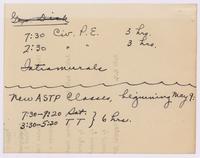 7:30 Civ. P.E. 3 hrs.
2:30 " " 3 hrs.
Intramurals
New ASTP Classes, beginning May 9.
7:30-9:20 Sat. } 6 hrs.
3:30-5:20 T T